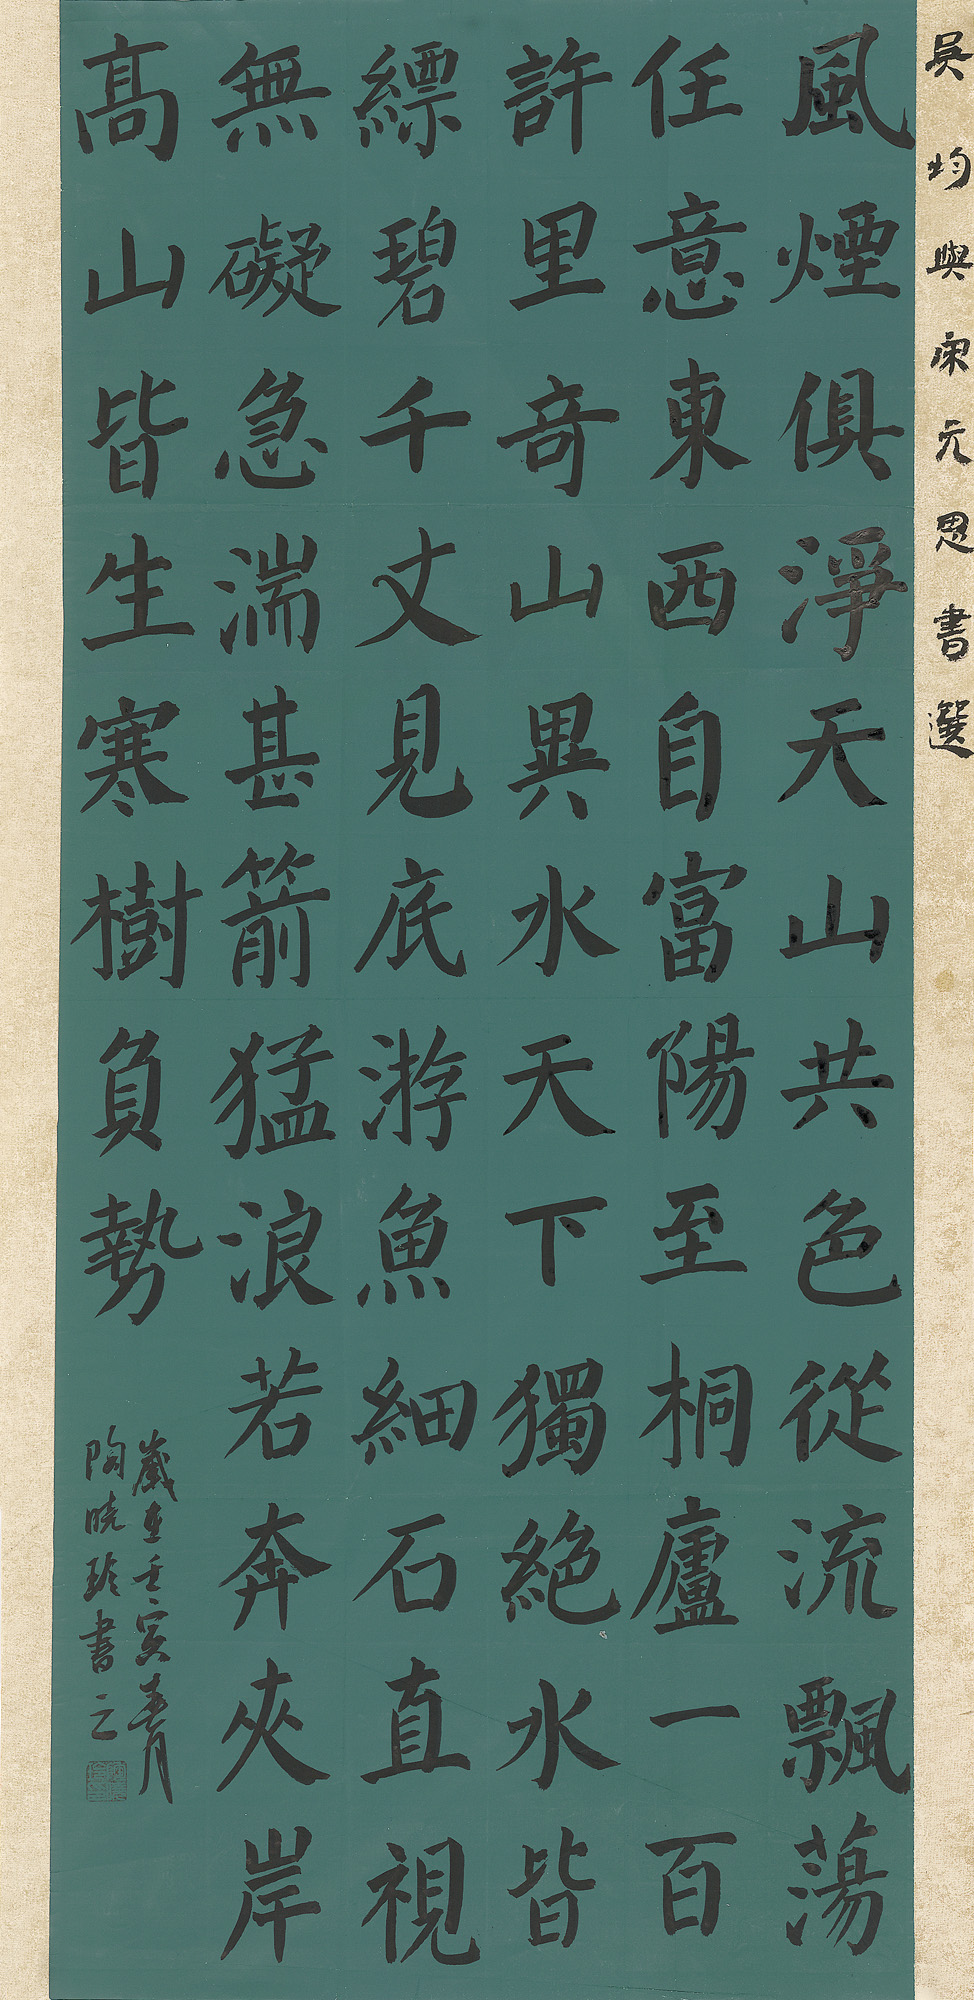 吳均與宋元思書選
風煙俱淨天山共色從流飄蕩
任意東西自富陽至桐廬一百
許里竒山異水天下獨絕水皆
縹碧千丈見底游魚細石直視
無礙急湍甚箭猛浪若奔夾岸
髙山皆生寒樹負勢
歲在壬寅春月
陶曉玲書之